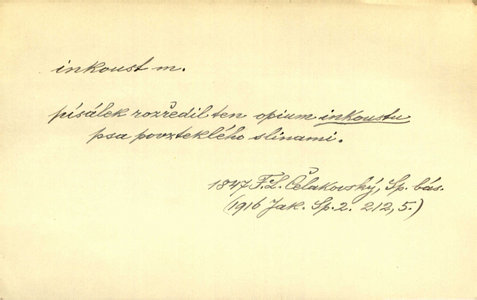 inkoust m.
písálek rozředil ten opium inkoustu
psa povzteklého slinami.
1847 F. L. Čelakovský, Sp. bás.
(1916 Jak. Sp. 2. 212, 5.)